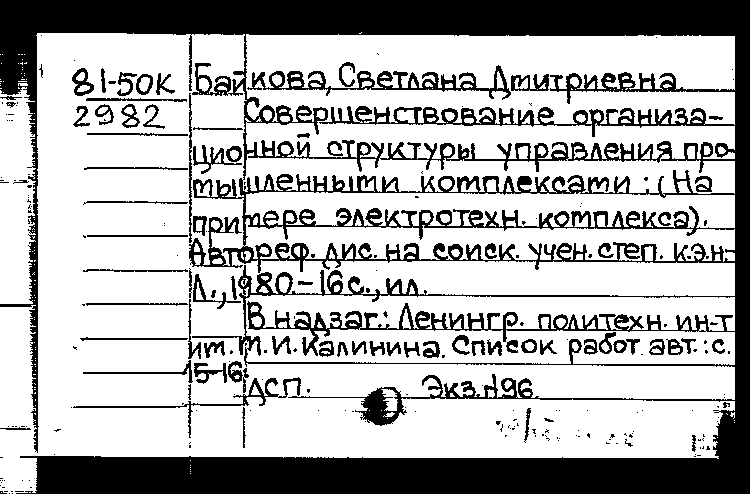 81-50К Байкова, Светлана Дмитриевна.
2982 Совершенствование организа-
ционной структуры управления про-
мышленными комплексами : (На
примере электротехн. комплекса).
Автореф. дис. на соиск. учен. степ. к.э.н.-
Л., 1980.-16с., ил.
В надзаг.: Ленингр. политехн. ин-т
им. М.И. Калинина. Список работ авт.: с.
15-16
ДСП. Экз. №96.